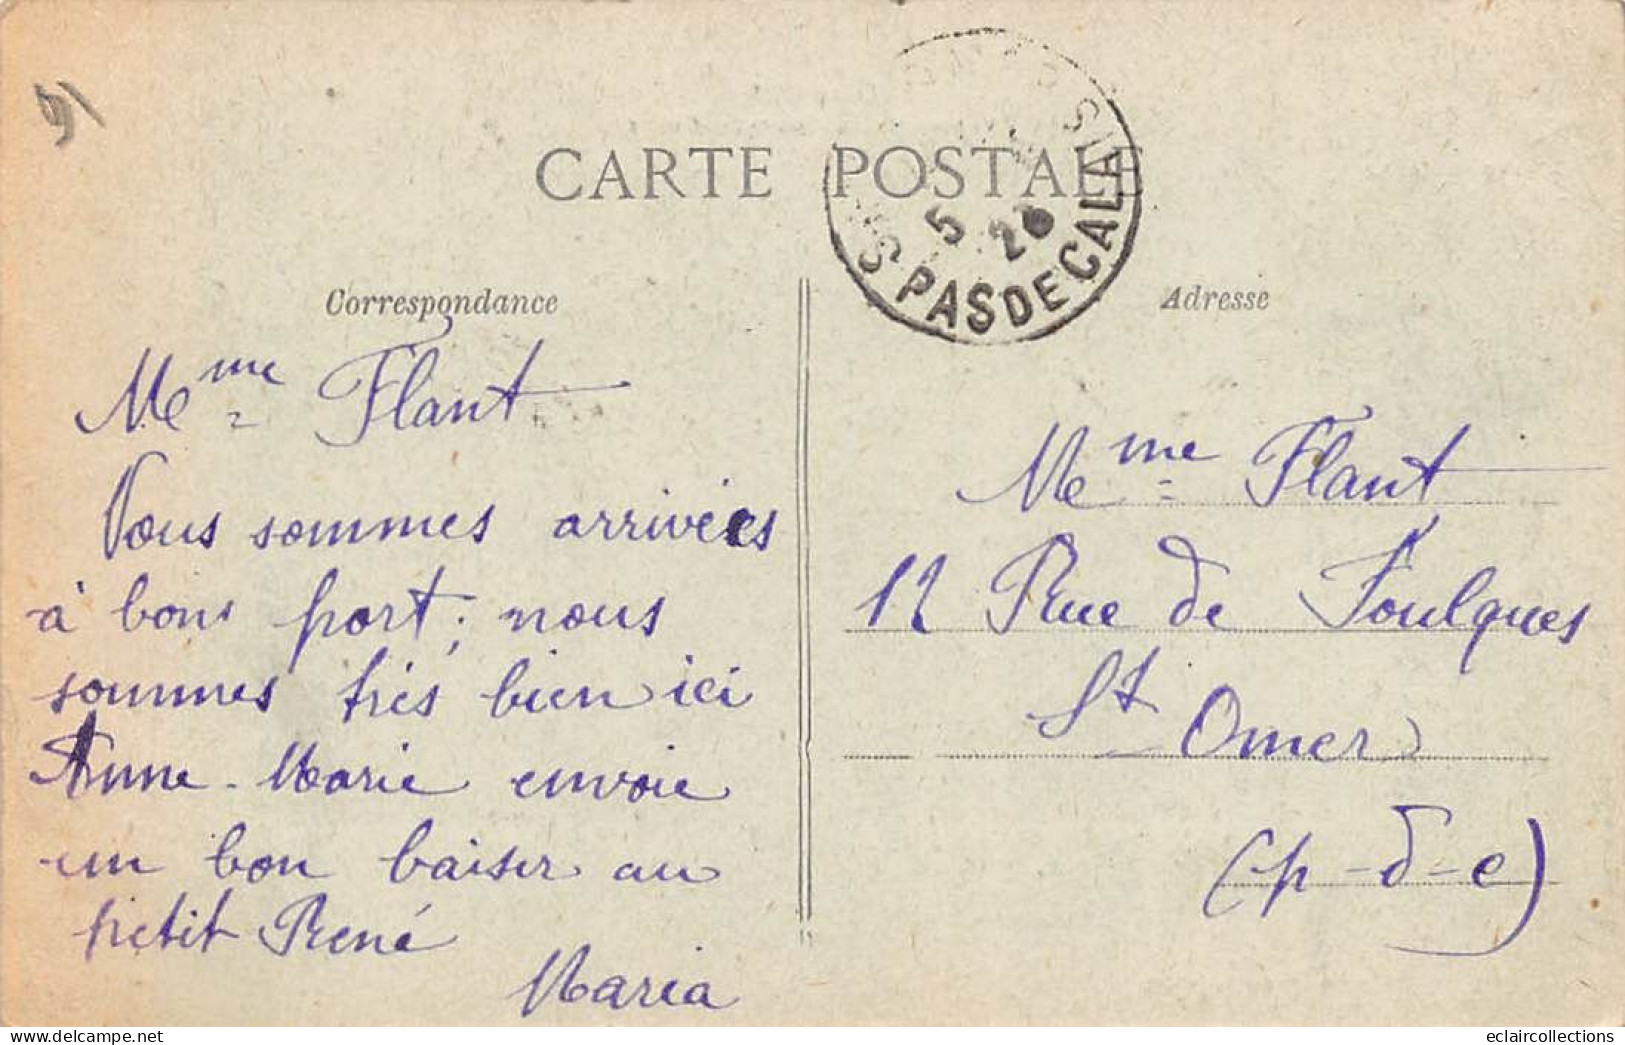 CARTE POSTALE
5 2
S PAS DE CALAIS
Correspondance
Mme Flant
Nous sommes arrivées
à bons port; nous
sommes très bien ici
Anne-Marie envoie
un bon baiser au
petit René
Maria
Adresse
Mme Flant
12 Rue de Foulques
St Omer
(p-d-c)
eclaircollections